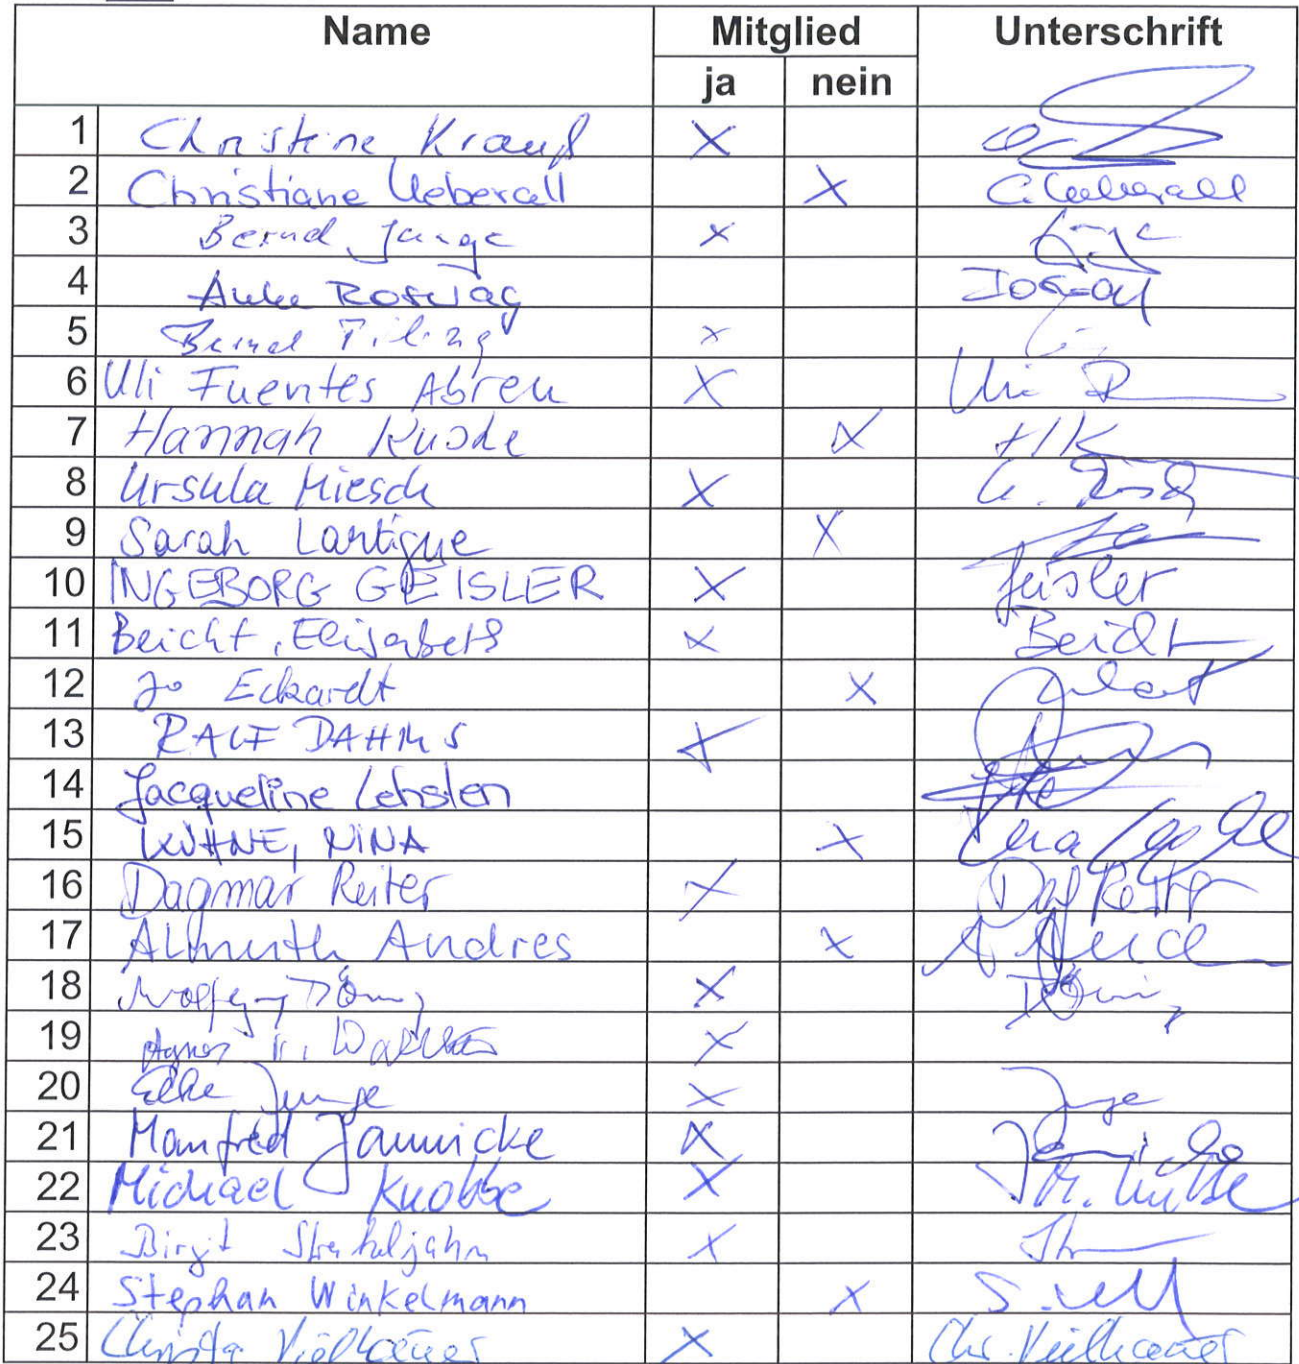 Name Mitglied Unterschrift
ja nein
1 Christine Krauß X
2 Christiane Ueberall X C. Ueberall
3 Bernd Junge X Junge
4 Anke
5 Bernd X
6 Uli Fuentes Abreu X Uli
7 Hannah X HK
8 Ursula Miesch X U.
9 Sarah Lartigue X
10 INGEBORG GEISLER X Geisler
11 Beicht, Elisabeth X Beicht
12 Jo Eckardt X
13 RALF DAHMS X
14 Jacqueline Lehsten
15 KÜHNE, NINA X
16 Dagmar Reiter X Dag Reiter
17 Almuth Andres X A
18 Wolfgang X
19 Agnes X
20 Elke Junge X Junge
21 Manfred Jannicke X Jannicke
22 Michael Knobbe X M. Knobbe
23 Birgit X
24 Stephan Winkelmann X
25 Christa Vielhauer X Chr. Vielhauer